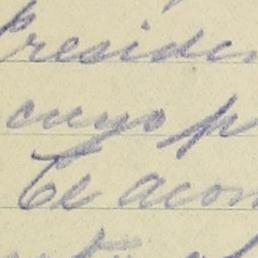 Presiden
cuyo p
Te acom